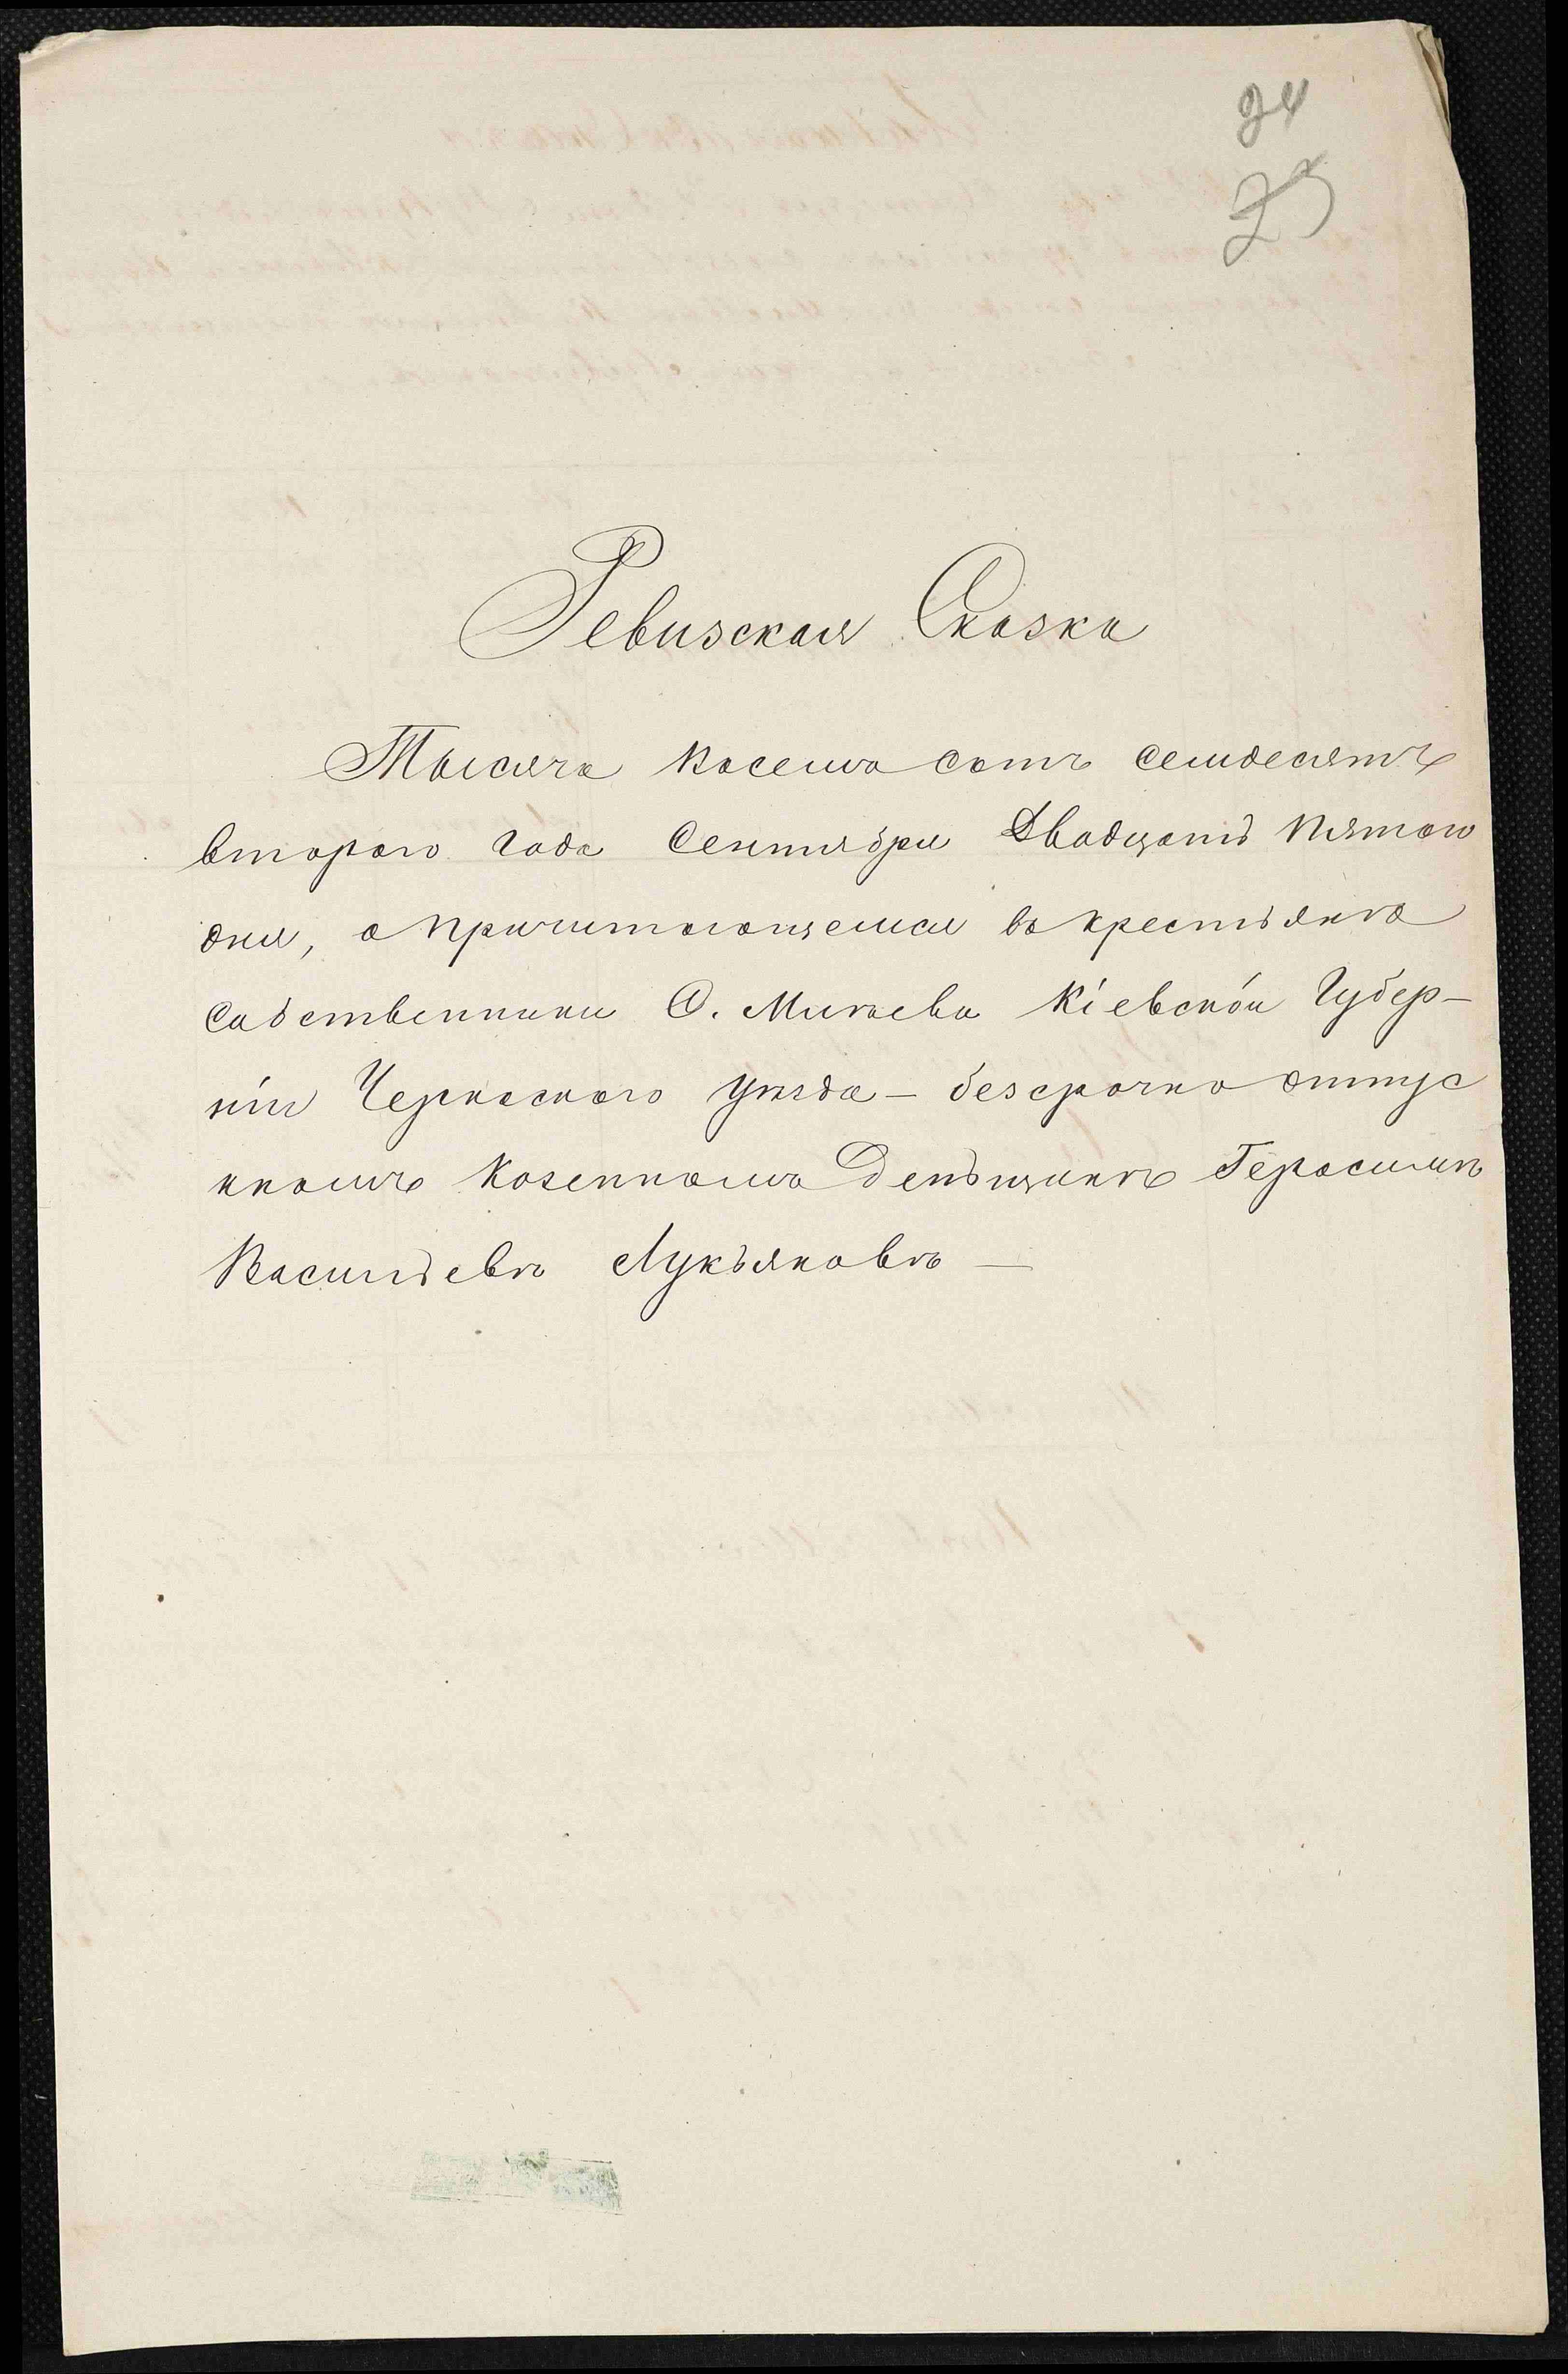 24
25
Ревизская Сказка
Тысяча восемь сотъ семдесятъ
второго года Сентября Двадцать пятого
дня, о причитающемся въ крестьянъ
собственники С. Мигаева Кіевской Губер-
ніи Черкаского уѣзда – безсрочно отпус
кномъ казенномъ Деньщикѣ Герасимъ
Васильевъ Лукьяновъ —